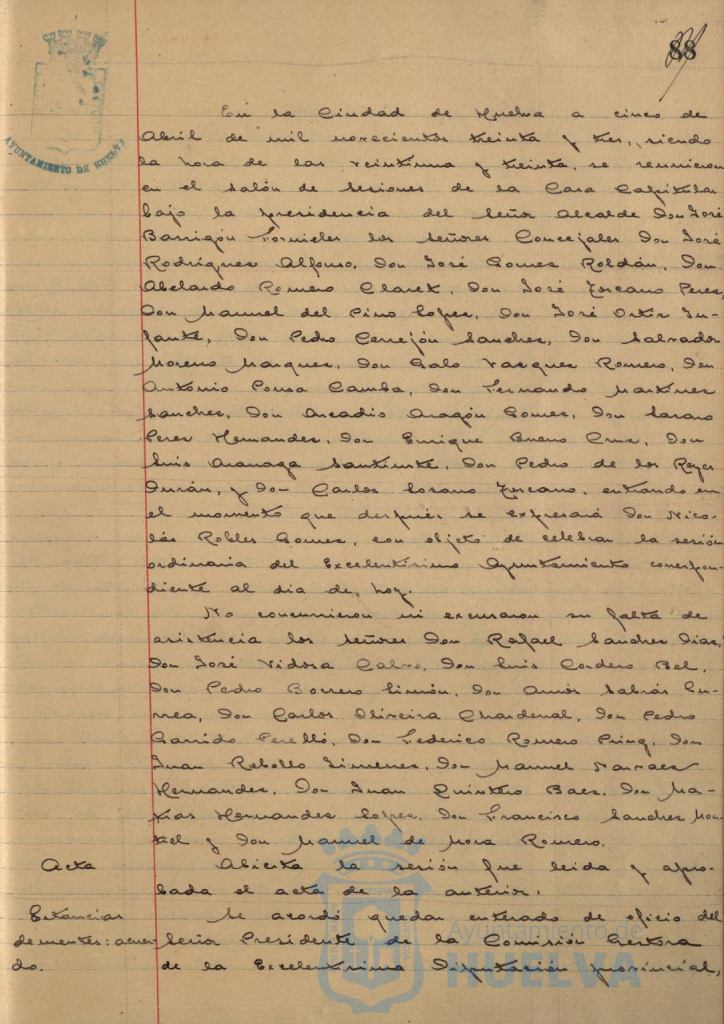 88
AYUNTAMIENTO DE HUELVA
En la Ciudad de Huelva a cinco de
Abril de mil novecientos treinta y tres, siendo
la hora de las veintiuna y treinta, se reunieron
en el salón de sesiones de la Casa Capitular
bajo la presidencia del Señor Alcalde Don José
Barrigón Fornieles los señores Concejales Don José
Rodríguez Alfonso, Don José Gomez Roldán, Don
Abelardo Romero Claret, Don José Toscano Perez,
Don Manuel del Pino Lopez, Don José Ortiz In-
fante, Don Pedro Cerrejón Sanchez, Don Salvador
Moreno Marquez, Don Galo Vazquez Romero, Don
Antonio Ponsa Camba, Don Fernando Martinez
Sanchez, Don Arcadio Aragón Gomez, Don Sararo
Perez Hernandez, Don Enrique Bueno Cruz, Don
Luis Aranaga Santiuste, Don Pedro de los Reyes
Durán, y Don Carlos Lozano Toscano, entrando en
el momento que después se expresará Don Nico-
lás Robles Gomez, con objeto de celebrar la sesión
ordinaria del Excelentísimo Ayuntamiento correspon-
diente al dia de hoy.
No concurrieron ni excusaron su falta de
asistencia los señores Don Rafael Sanchez Diaz,
Don José Vidosa Calvo, Don Luis Cordero Bel,
Don Pedro Borrero Limón, Don Amós Sabrás Gu-
rrea, Don Carlos Oliveira Chardenal, Don Pedro
Garrido Perelló, Don Federico Romero Pring, Don
Juan Rebollo Jimenez, Don Manuel Narvaez
Hernandez, Don Juan Quintero Baez, Don Ma-
tias Hernandez Lopez, Don Francisco Sanchez Mon-
tiel y Don Manuel de Mora Romero.
Acta Abierta la sesión fue leida y apro-
bada el acta de la anterior.
Estancias Se acordó quedar enterado de oficio del
dementes: acuer- Señor Presidente de la Comisión Gestora
do. de la Excelentísima Diputación provincial,
Ayuntamiento de
HUELVA